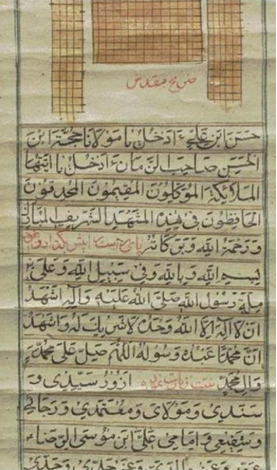 ضریح مقدس
حسن ابن علی ءادخل یا مولانا حجة ابن
الحسن صاحب الزمان ءادخل یا ایتها
الملائکة الموکلون المقیمون المحدقون
الحافظون فی هذه المشهد الشریف المبارک
و رحمة الله و برکاته
بسم الله و بالله و فی سبیل الله و علی
ملة رسول الله صلی الله علیه و آله اشهد
ان لا اله الا الله وحده لا شریک له و اشهد
ان محمدا عبده و رسوله اللهم صل علی محمد
و آل محمد ازور سیدی و
سندی و مولای و معتمدی و رجائی
و شفیعی و امامی علی ابن موسی الرضا